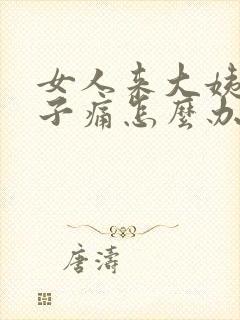 女人来大姨
子痛怎麼办
唐濤